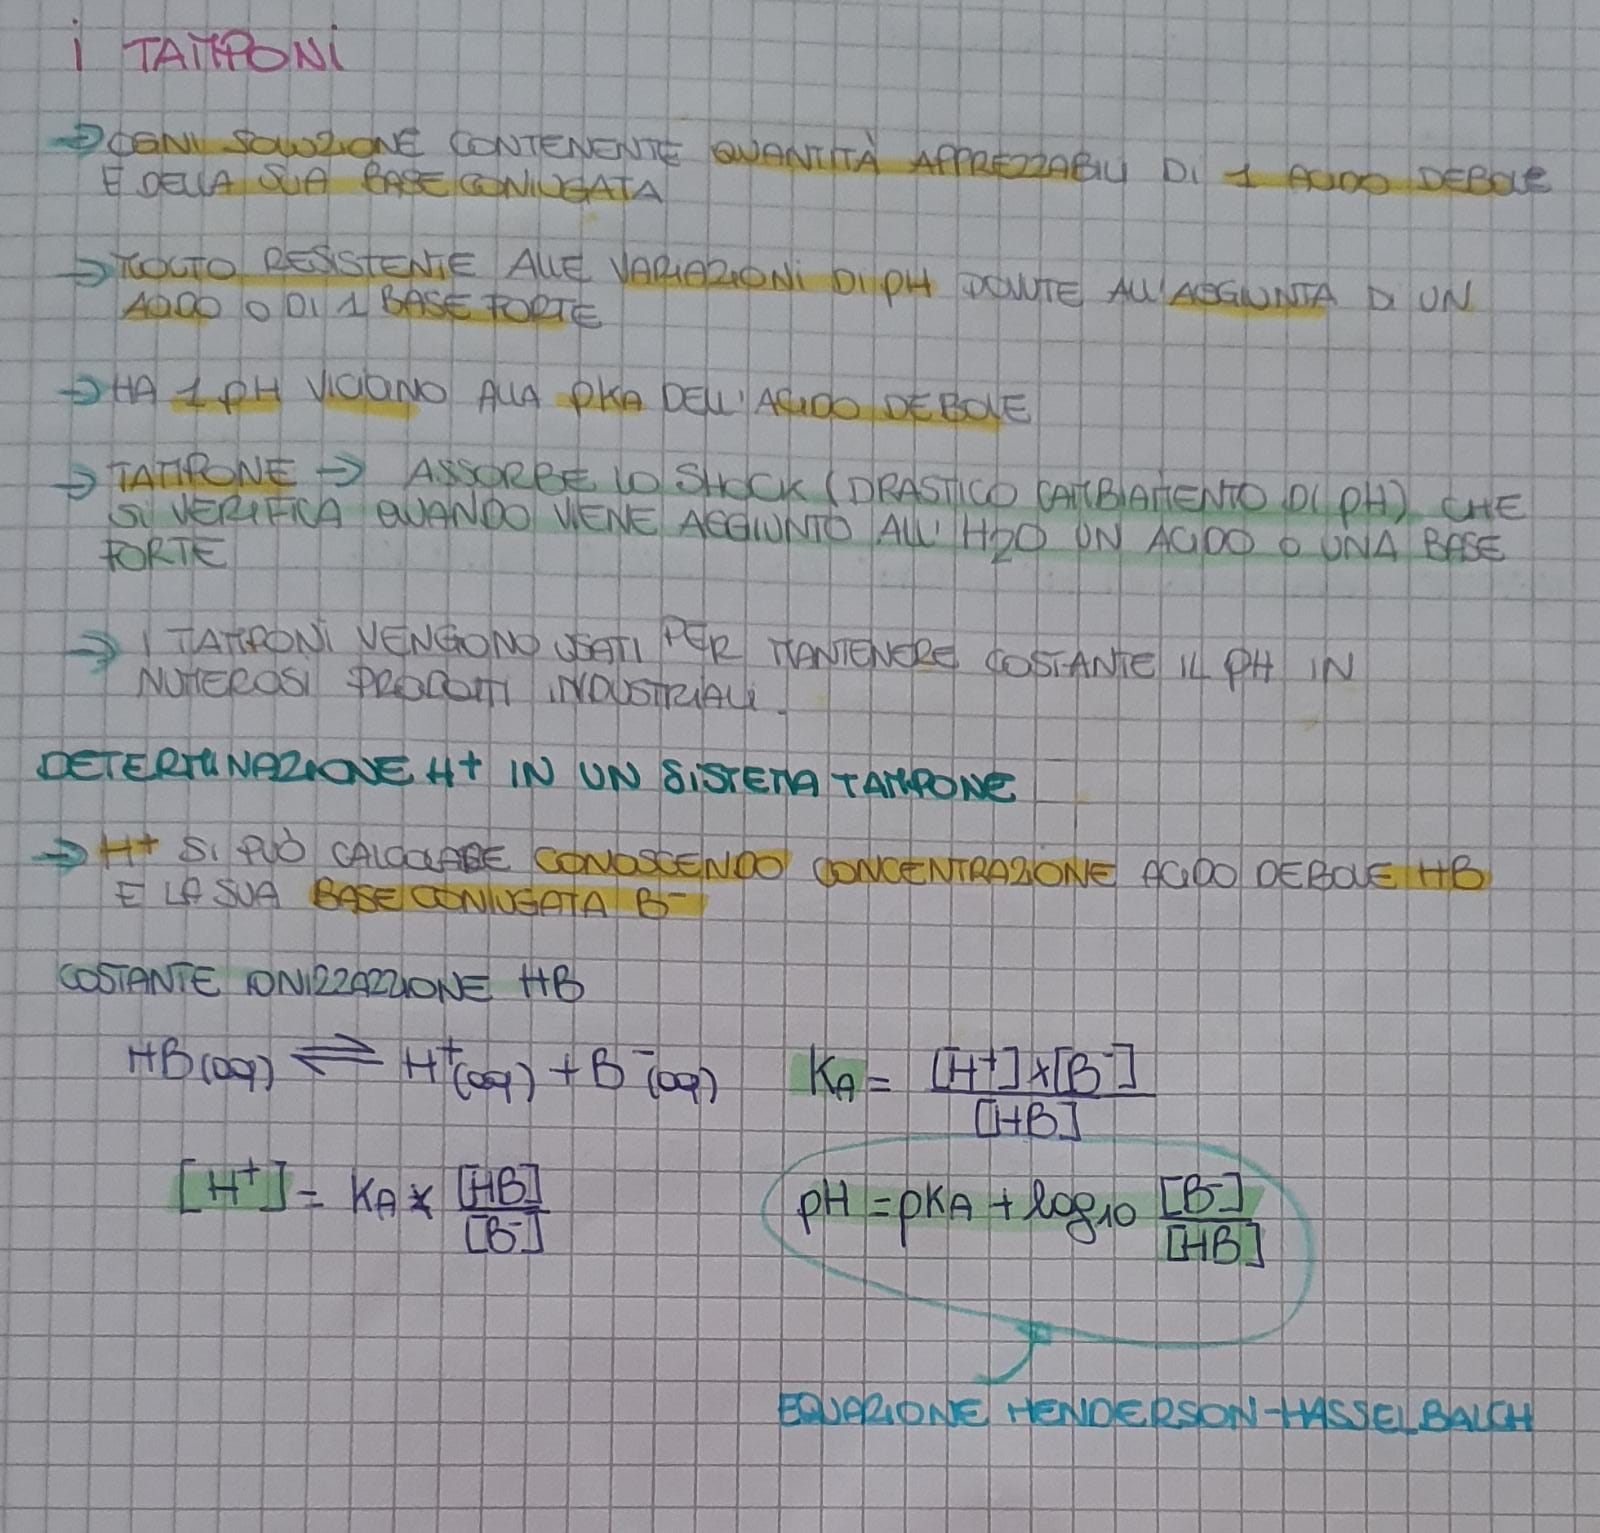 I TAMPONI
→ OGNI SOLUZIONE CONTENENTE QUANTITÀ APPREZZABILI DI 1 ACIDO DEBOLE
E DELLA SUA BASE CONIUGATA
→ MOLTO RESISTENTE ALLE VARIAZIONI DI PH DOVUTE ALL'AGGIUNTA DI UN
ACIDO O DI 1 BASE FORTE
→ HA 1 PH VICINO ALLA PKA DELL'ACIDO DEBOLE
→ TAMPONE → ASSORBE LO SHOCK (DRASTICO CAMBIAMENTO DI PH) CHE
SI VERIFICA QUANDO VIENE AGGIUNTO ALL'H2O UN ACIDO O UNA BASE
FORTE
→ I TAMPONI VENGONO USATI PER MANTENERE COSTANTE IL PH IN
NUMEROSI PRODOTTI INDUSTRIALI.
DETERMINAZIONE H+ IN UN SISTEMA TAMPONE
→ H+ SI PUÒ CALCOLARE CONOSCENDO CONCENTRAZIONE ACIDO DEBOLE HB
E LA SUA BASE CONIUGATA B-
COSTANTE IONIZZAZZIONE HB
HB(aq) ⇌ H+(aq) + B-(aq) KA = [H+]×[B-] / [HB]
[H+] = KA × [HB] / [B-] pH = pKA + log10 [B-] / [HB]
EQUAZIONE HENDERSON-HASSELBALCH